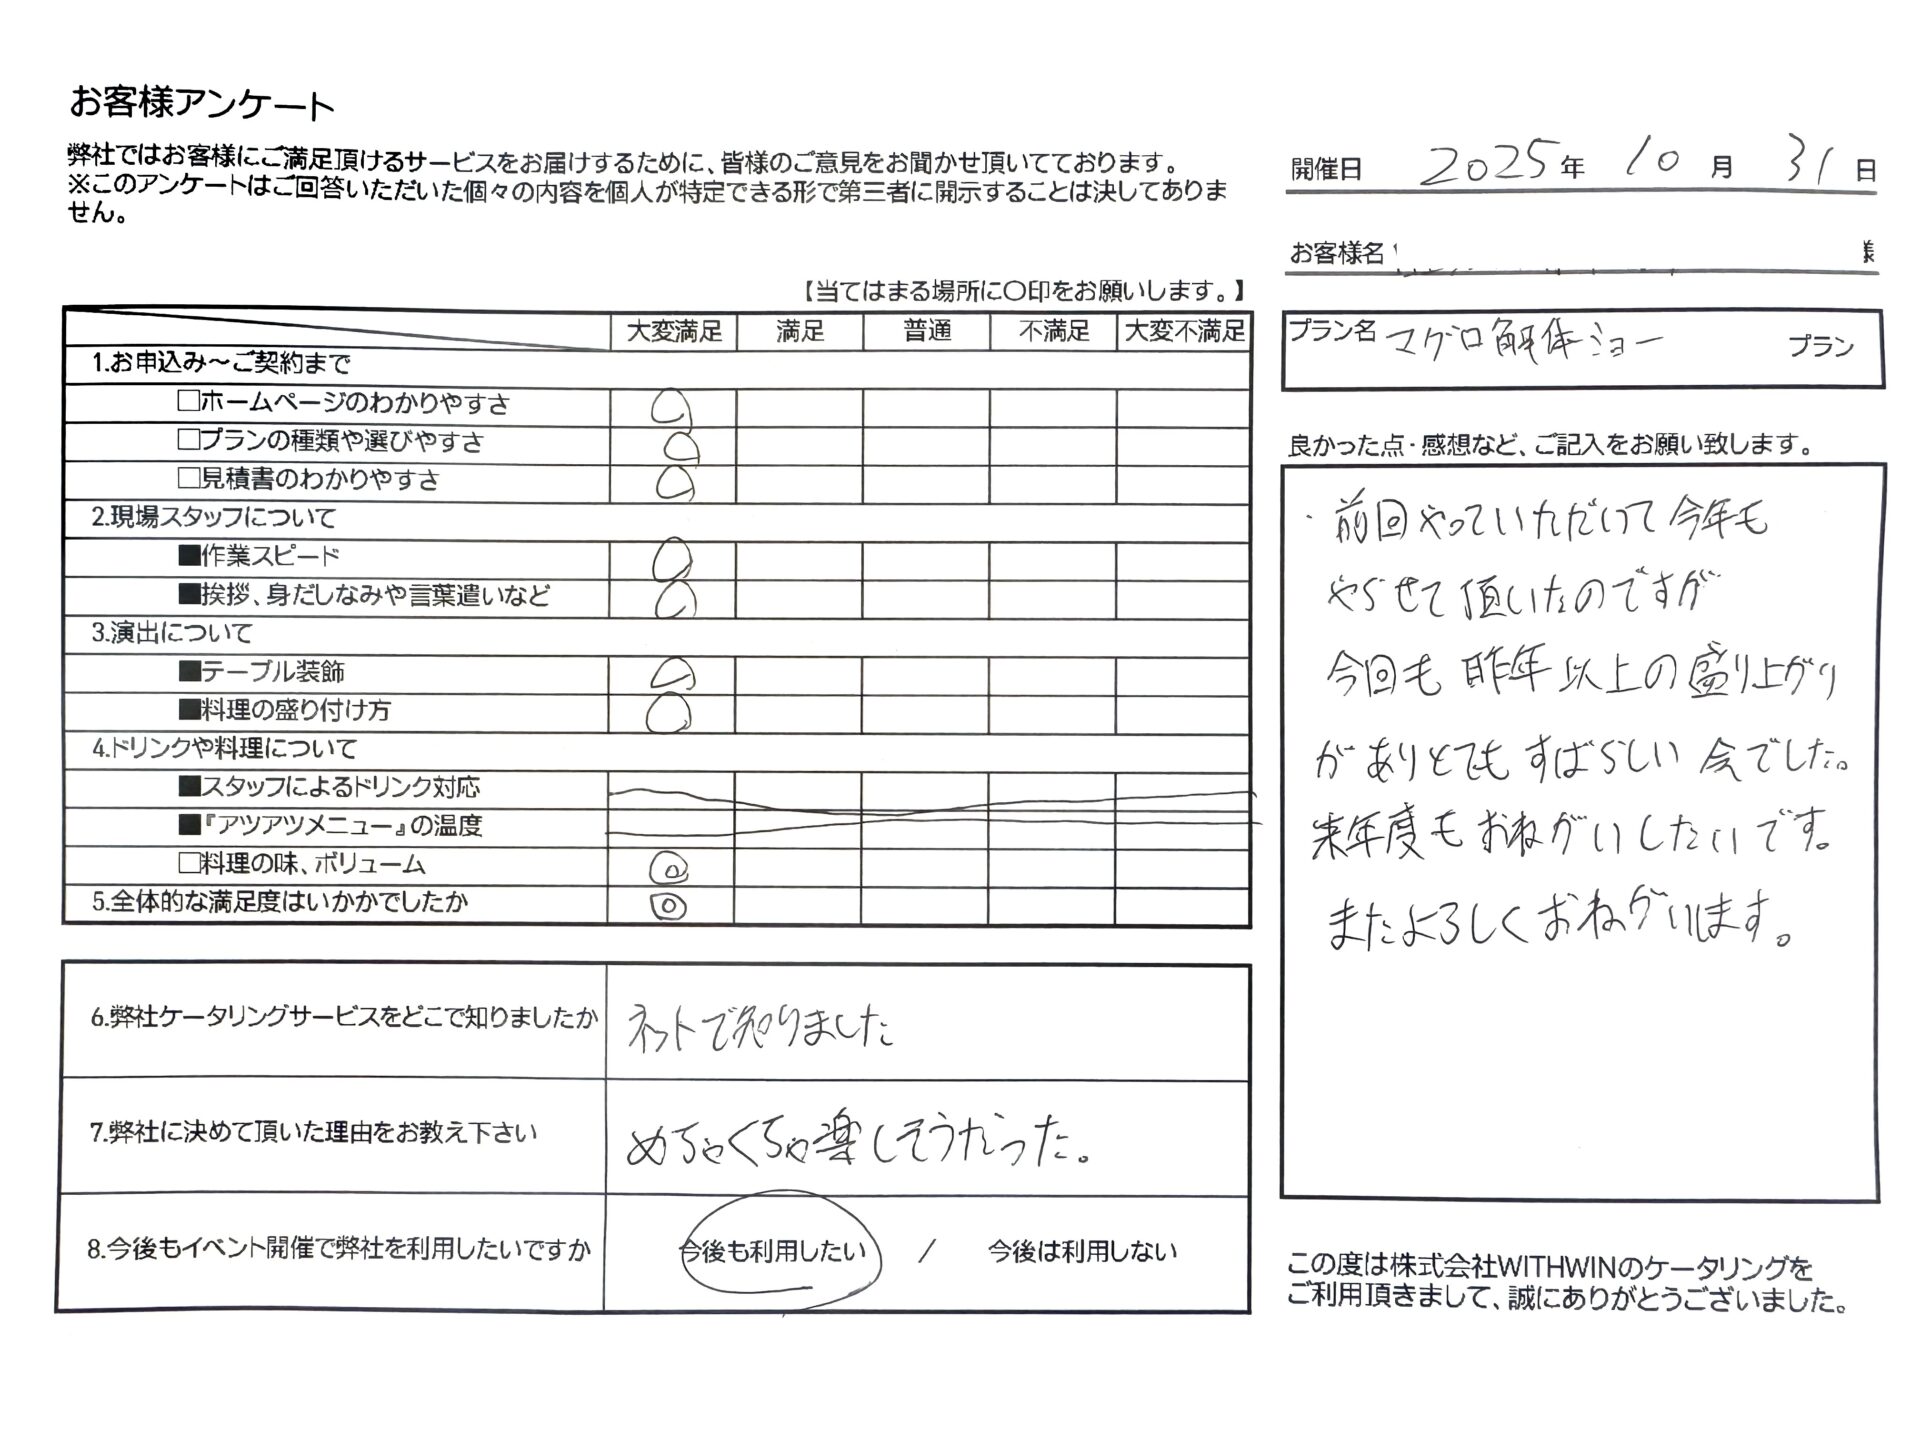 お客様アンケート
弊社ではお客様にご満足頂けるサービスをお届けするために、皆様のご意見をお聞かせ頂いてております。
※このアンケートはご回答いただいた個々の内容を個人が特定できる形で第三者に開示することは決してありま
せん。
開催日 2025年 10月 31日
お客様名 様
【当てはまる場所に〇印をお願いします。】
大変満足 満足 普通 不満足 大変不満足
1.お申込み～ご契約まで
□ホームページのわかりやすさ ○
□プランの種類や選びやすさ ○
□見積書のわかりやすさ ○
2.現場スタッフについて
■作業スピード ○
■挨拶、身だしなみや言葉遣いなど ○
3.演出について
■テーブル装飾 ○
■料理の盛り付け方 ○
4.ドリンクや料理について
■スタッフによるドリンク対応
■『アツアツメニュー』の温度
□料理の味、ボリューム ◎
5.全体的な満足度はいかかでしたか ◎
6.弊社ケータリングサービスをどこで知りましたか ネットで知りました
7.弊社に決めて頂いた理由をお教え下さい めちゃくちゃ楽しそうだった。
8.今後もイベント開催で弊社を利用したいですか 今後も利用したい / 今後は利用しない
プラン名 マグロ解体ショー プラン
良かった点・感想など、ご記入をお願い致します。
・前回やっていただいて今年も
やらせて頂いたのですが
今回も昨年以上の盛り上がり
がありとてもすばらしい会でした。
来年度もおねがいしたいです。
またよろしくおねがいします。
この度は株式会社WITHWINのケータリングを
ご利用頂きまして、誠にありがとうございました。